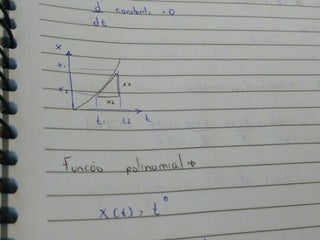 d constante = 0
dt
x
x₁
x₂
t₁ t2 t
Função polinomial
x(t) = tⁿ